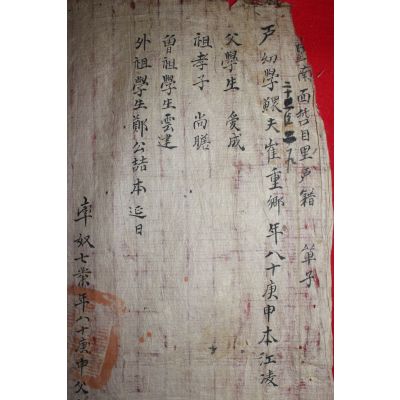 南面哲目里戶籍 單子
戶幼學鰥夫崔重鄉年八十庚申本江凌
父學生 愛成
祖孝子 尚聦
曾祖學生雲建
外祖學生鄭公喆本迎日
率奴七業年八十庚申父